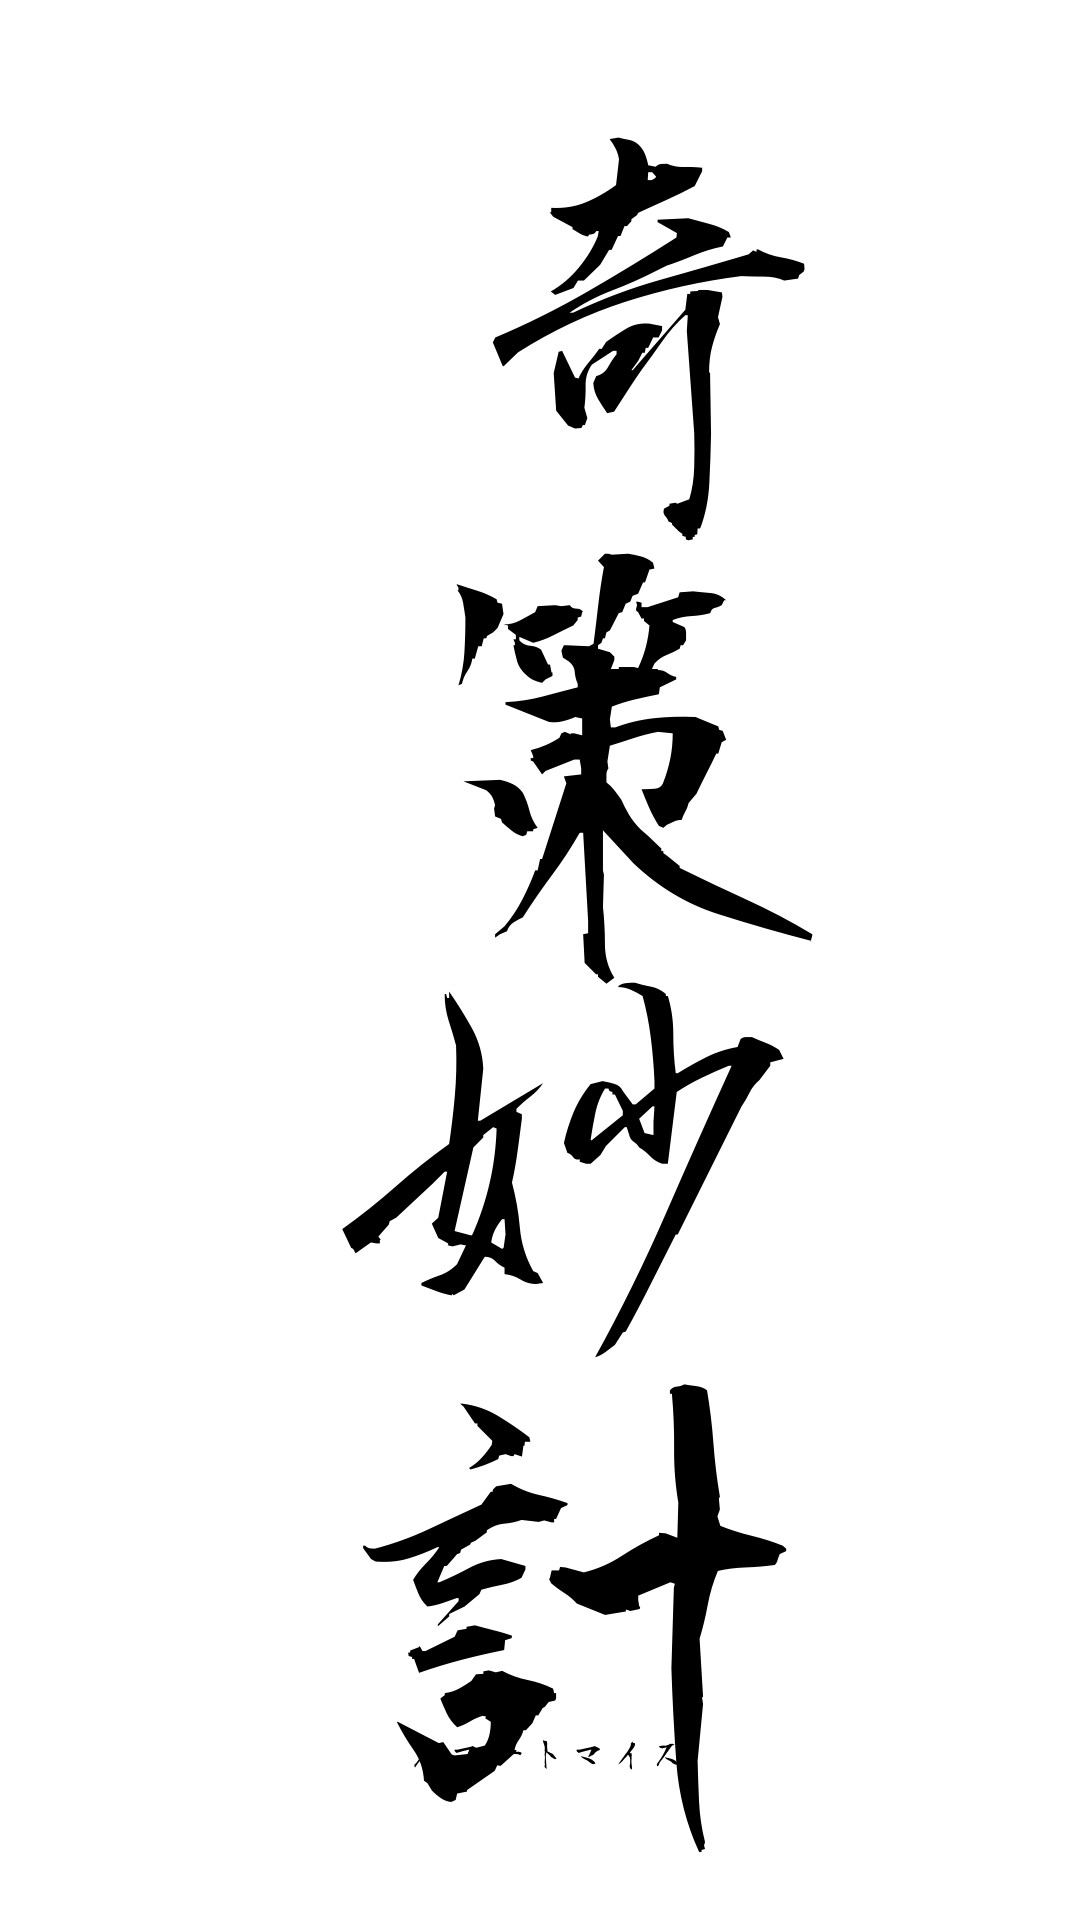 奇策妙計
トマイス